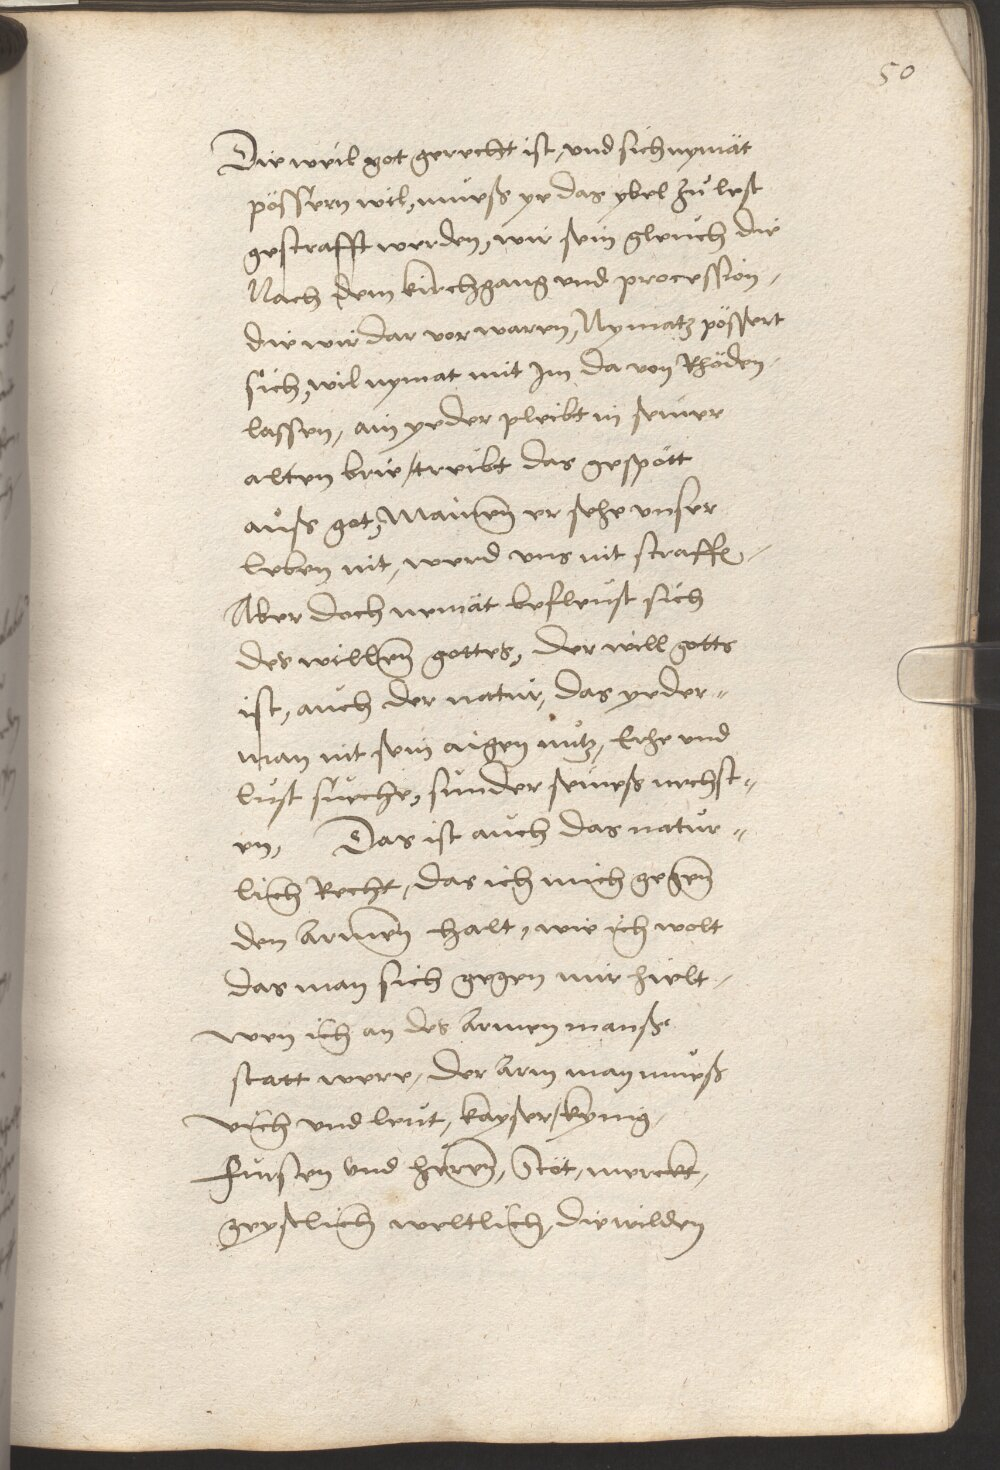 50
Die weil got gerecht ist, und sich nymāt
pössern wil, mueß ye das ybel zů lest
gestrafft werden, wir sein gleuch die
Nach dem kirchgang und procession,
die wir dar vor waren, Nymatz pössert
sich, wil nymat mit Im da von Rhöden
lassen, ain yeder pleibt in seiner
alten brie / treibt das gespött
auß got, Mainen er sehe unser
leben nit, werd uns nit straffen
Aber doch nemāt befleust sich
des willen gottes, der will gotts
ist, auch der natur, das yeder=
man nit sein aigen nutz, Erhe und
lust sueche, sunder seineß nechst=
en, Das ist auch das natur=
lich Recht, das ich mich gegen
den Armen halt, wie ich wolt
das man sich gegen mir hielt,
wen ich an des Armen manß
statt were, der Arm man mueß
vich und leut, kayser / kynig,
Fursten und heren, Stöt, merckt,
geystlich weltlich, die wilden